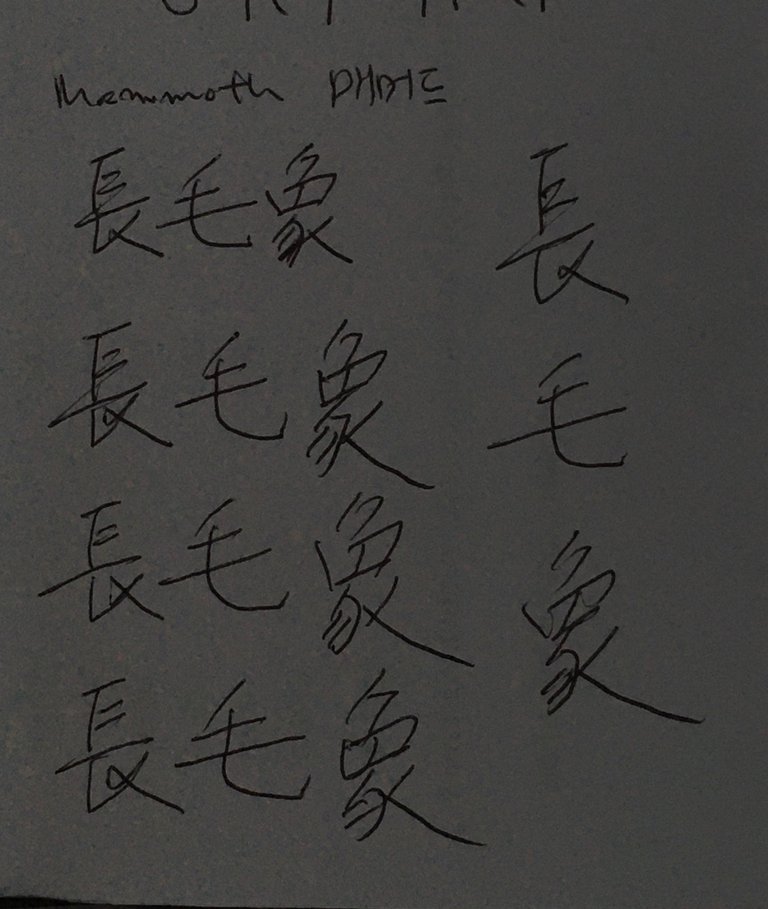 Mammoth 매머드
長毛象
長毛象
長毛象
長毛象
長
毛
象